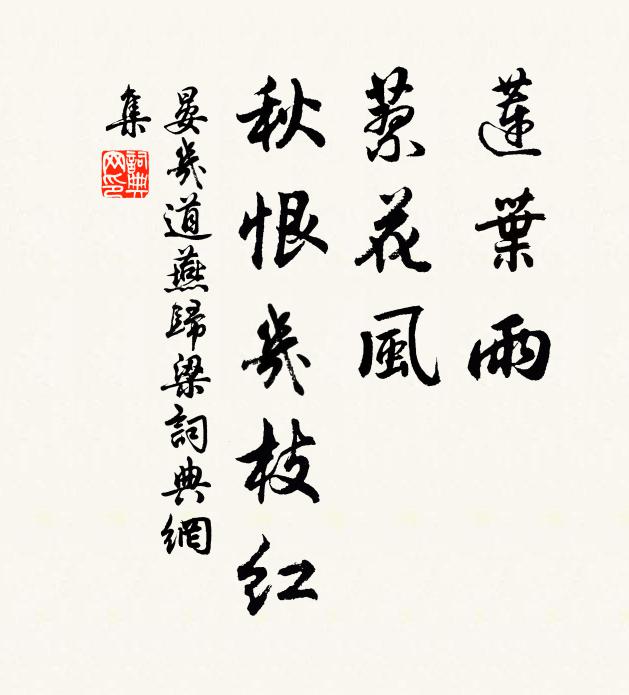 蓮葉雨
蓼花風
秋恨幾枝紅
晏幾道燕歸梁詞典網
集
詞典
网印